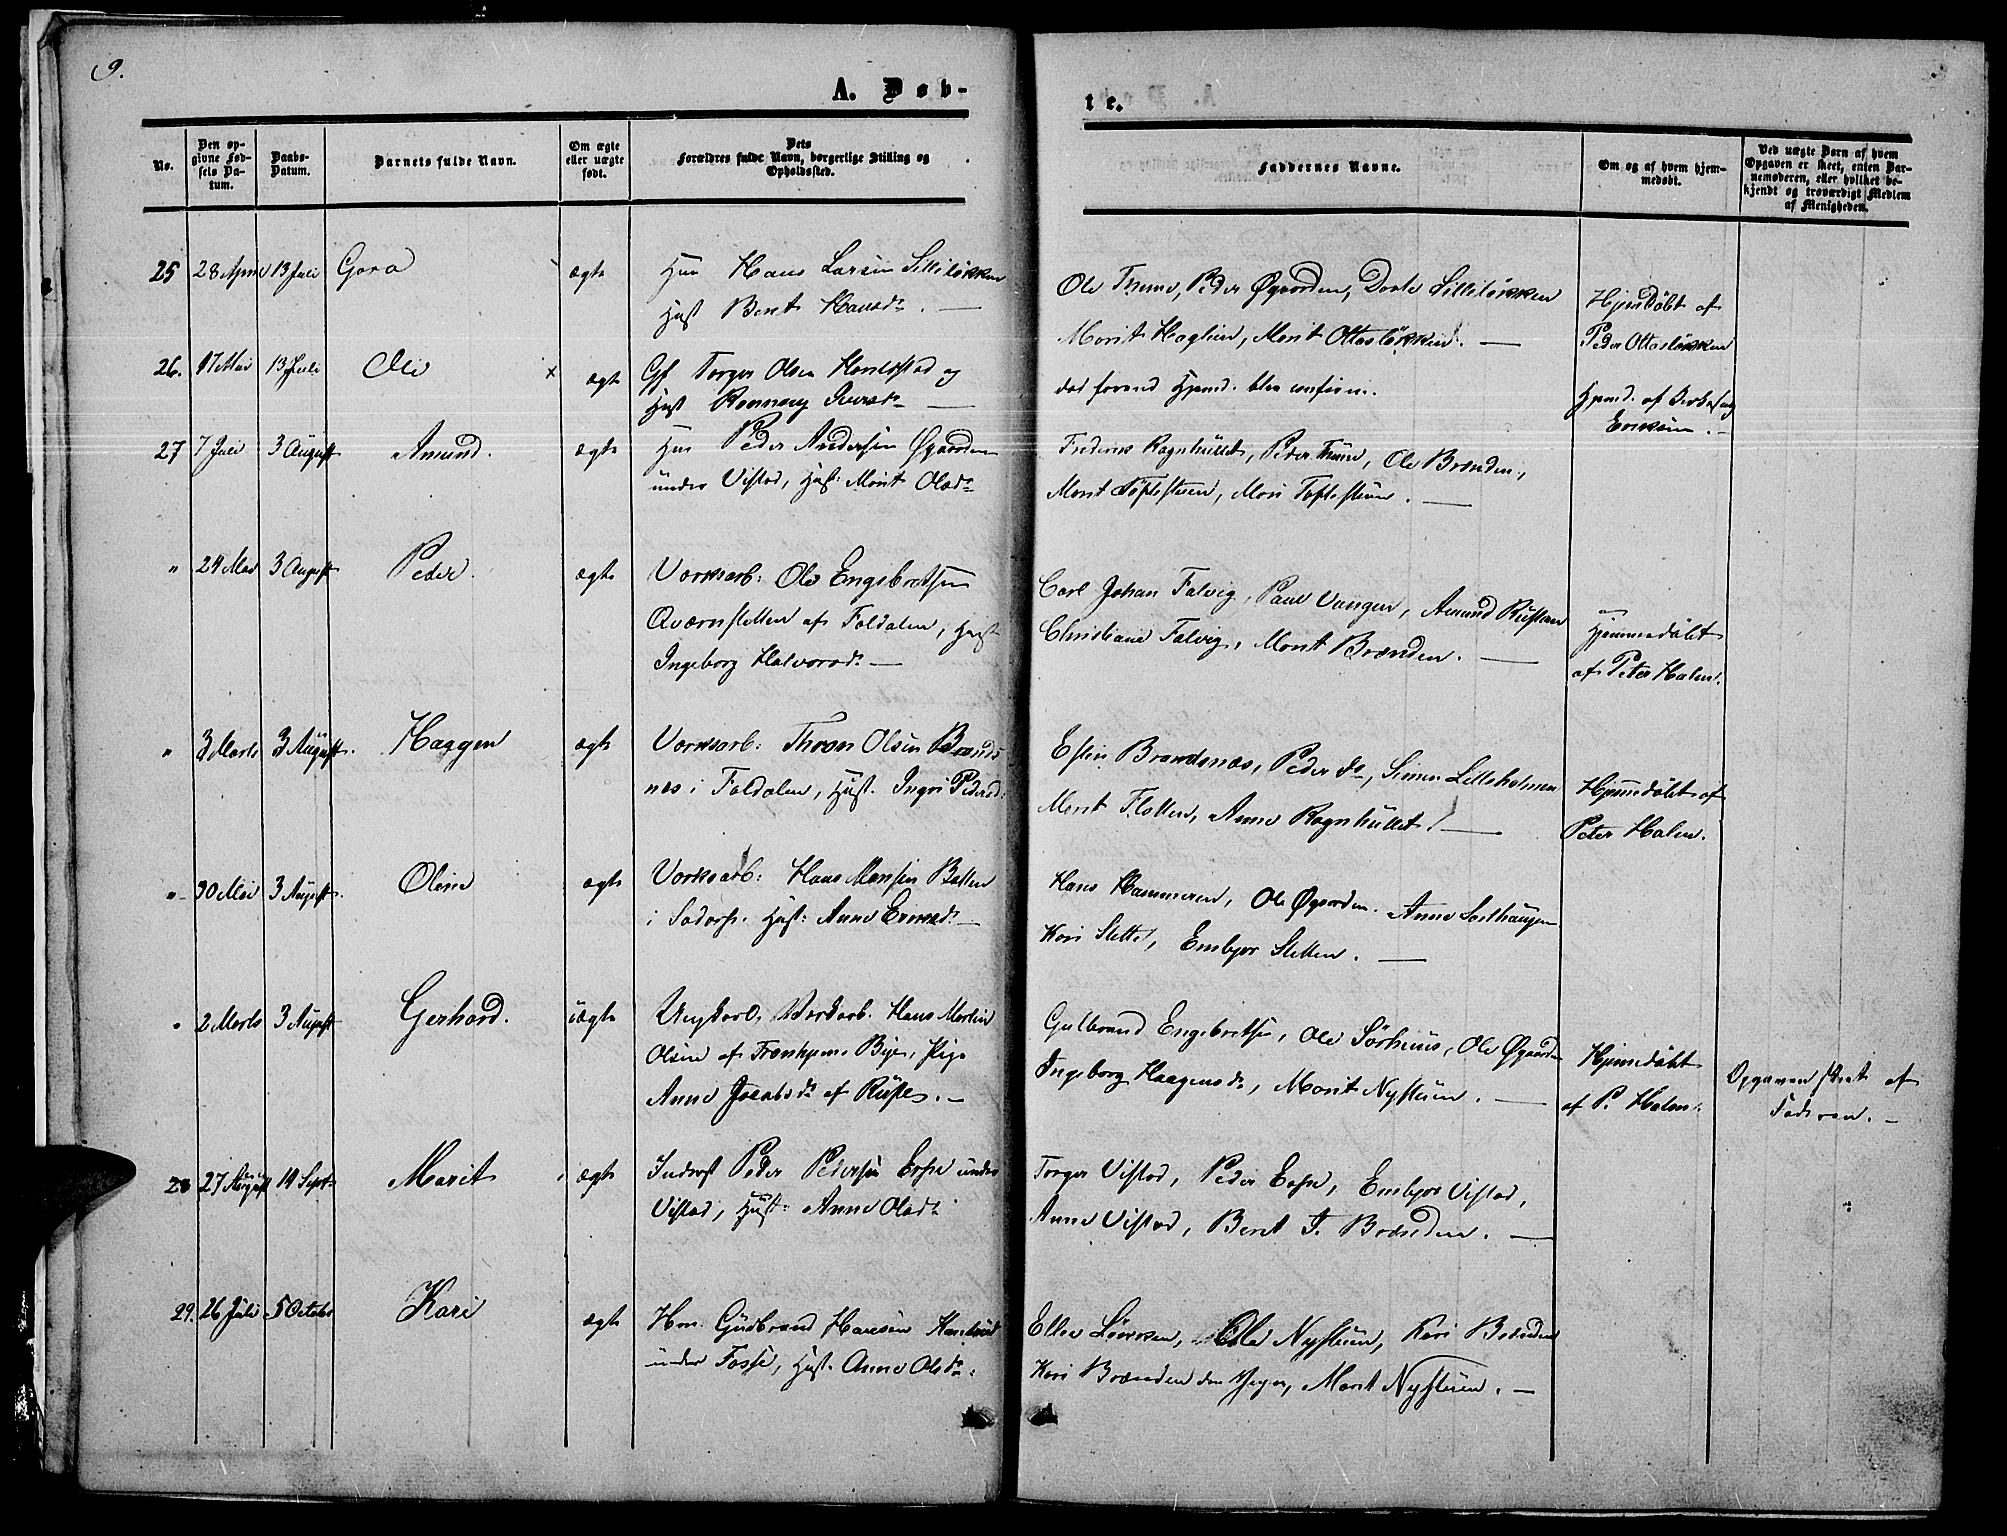 9.
A. Døb-
te.
No.
Den opgivne Fødsels Datum.
Daabs-Datum.
Barnets fulde Navn.
Om ægte eller uægte født.
Dets Forældres fulde Navn, borgerlige Stilling og Opholdssted.
Faddernes Navne.
Om og af hvem hjemmedøbt.
Ved uægte Børn af hvem Opgaven er skeet, enten Barnemoderen, eller hvilket bekjendt og troværdigt Medlem af Menigheden.
25 28 April 13 Juli ægte Hans Larsen Lilleløkken
Hust Berit Hansd.
Ole Thune, Peder Øgarden, Dorte Lilleløkken
Marit Haglien, Marit Ottosløkken. —
Hjemdøbt af
Peder Ottosløkken
26. 17 Mai 13 Juli Ole x ægte Gf. Torger Olsen og
Hust Ronnoug Iversd. —
død forend Hjemd. blev confirm.
Hjemd. af
Eriksen. —
27 7 Juli 3 August Amund. ægte Hm Peder Andersen Øgarden
under Vistad, Hust: Marit Olsd.
Frederik Ragnhullet, Peder Thune, Ole Brænden,
Marit Toftestuen, Mari Toftestuen. —
" 24 Mai 3 August Peder. ægte Værksarb: Ole Engebretsen
Qværnsletten af Foldalen, Hust
Ingeborg Halvorsd. —
Carl Johan Falvig, Paul Vangen, Amund Rusten
Christiane Falvig, Marit Brænden. —
Hjemmedøbt
af Peter Holen.
" 3 Marts 3 August. Haagen ægte Værksarb: Thron Olsen Brands
næs i Foldalen, Hust. Ingri Pedersd:
Esten Brandsnæs, Peder do, Simen Lilleholmen
Marit Flatten, Anne Ragnhullet. —
Hjemmedøbt af
Peter Holen.
" 30 Mai 3 August. Oline ægte Værksarb: Hans Monsen Bakken
i Sødorp. Hust: Anne Eriksd. —
Hans Hammeren, Ole Øgarden. Anne
Kari Slette, Embjør Sletten. —
" 2 Marts 3 August Gerhard. uægte Ungkarl, Værksarb. Hans Martin
Olsen af Trondhjems Bye, Pige
Anne Jacobsd. af Ruste. —
Gulbrand Engebretsen, Ole Sørhuus, Ole Øgarden
Ingeborg Haagensd., Marit Nystuen. —
Hjemmedøbt
af P. Holen.
Opgaven skeet af
Faderen. —
28 27 August 14 Sept. Marit ægte Inderst Peder Pedersen under
Vistad, Hust: Anne Olsd.
Torger Vistad, Peder Embjør Vistad,
Anne Vistad, Berit T. Brænden. —
29. 26 Juli 5 October Kari ægte Hm. Gudbrand Hansen
under Fosse, Hust. Anne Olsd.
Ole Nystuen, Kari Brænden
Kari Brænden den yngre, Marit Nystuen. —